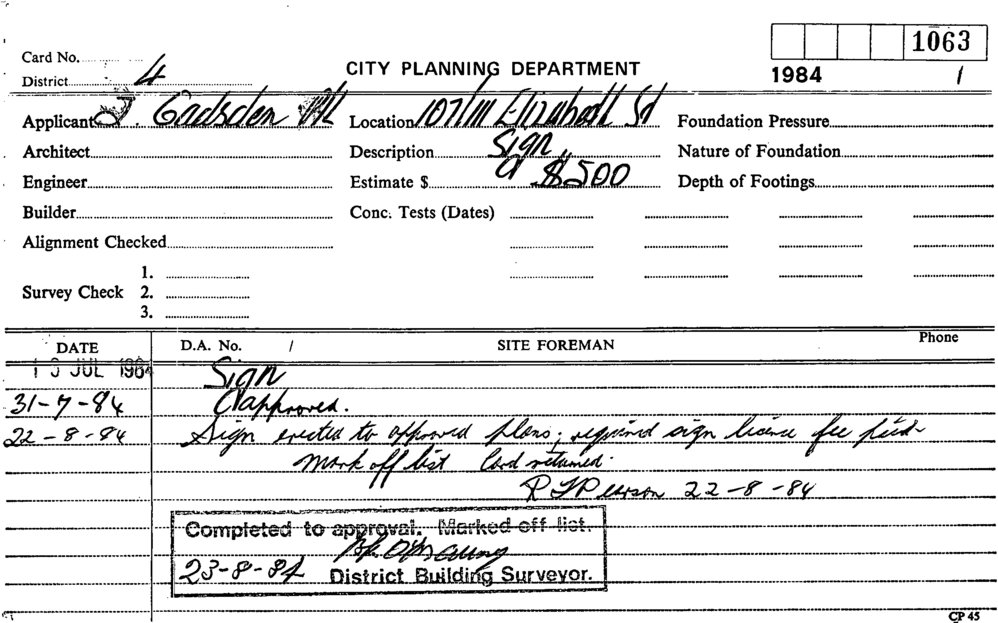 1063
Card No.
CITY PLANNING DEPARTMENT
1984 1
District 4
Applicant J. Gadsden P/L Location 107/111 Elizabeth St Foundation Pressure
Architect Description Sign Nature of Foundation
Engineer Estimate $ $500 Depth of Footings
Builder Conc. Tests (Dates)
Alignment Checked
1.
Survey Check 2.
3.
DATE D.A. No. / SITE FOREMAN Phone
JUL 1984 Sign
31-7-84 approved.
22-8-84 Sign erected to approved plans; required sign licence fee paid
Mark off list Card returned.
R J Pearson 22-8-84
Completed to approval. Marked off list.
23-8-84 District Building Surveyor.
CP 45